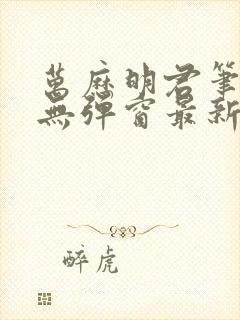 萬歷明君筆
無彈窗最新
醉虎